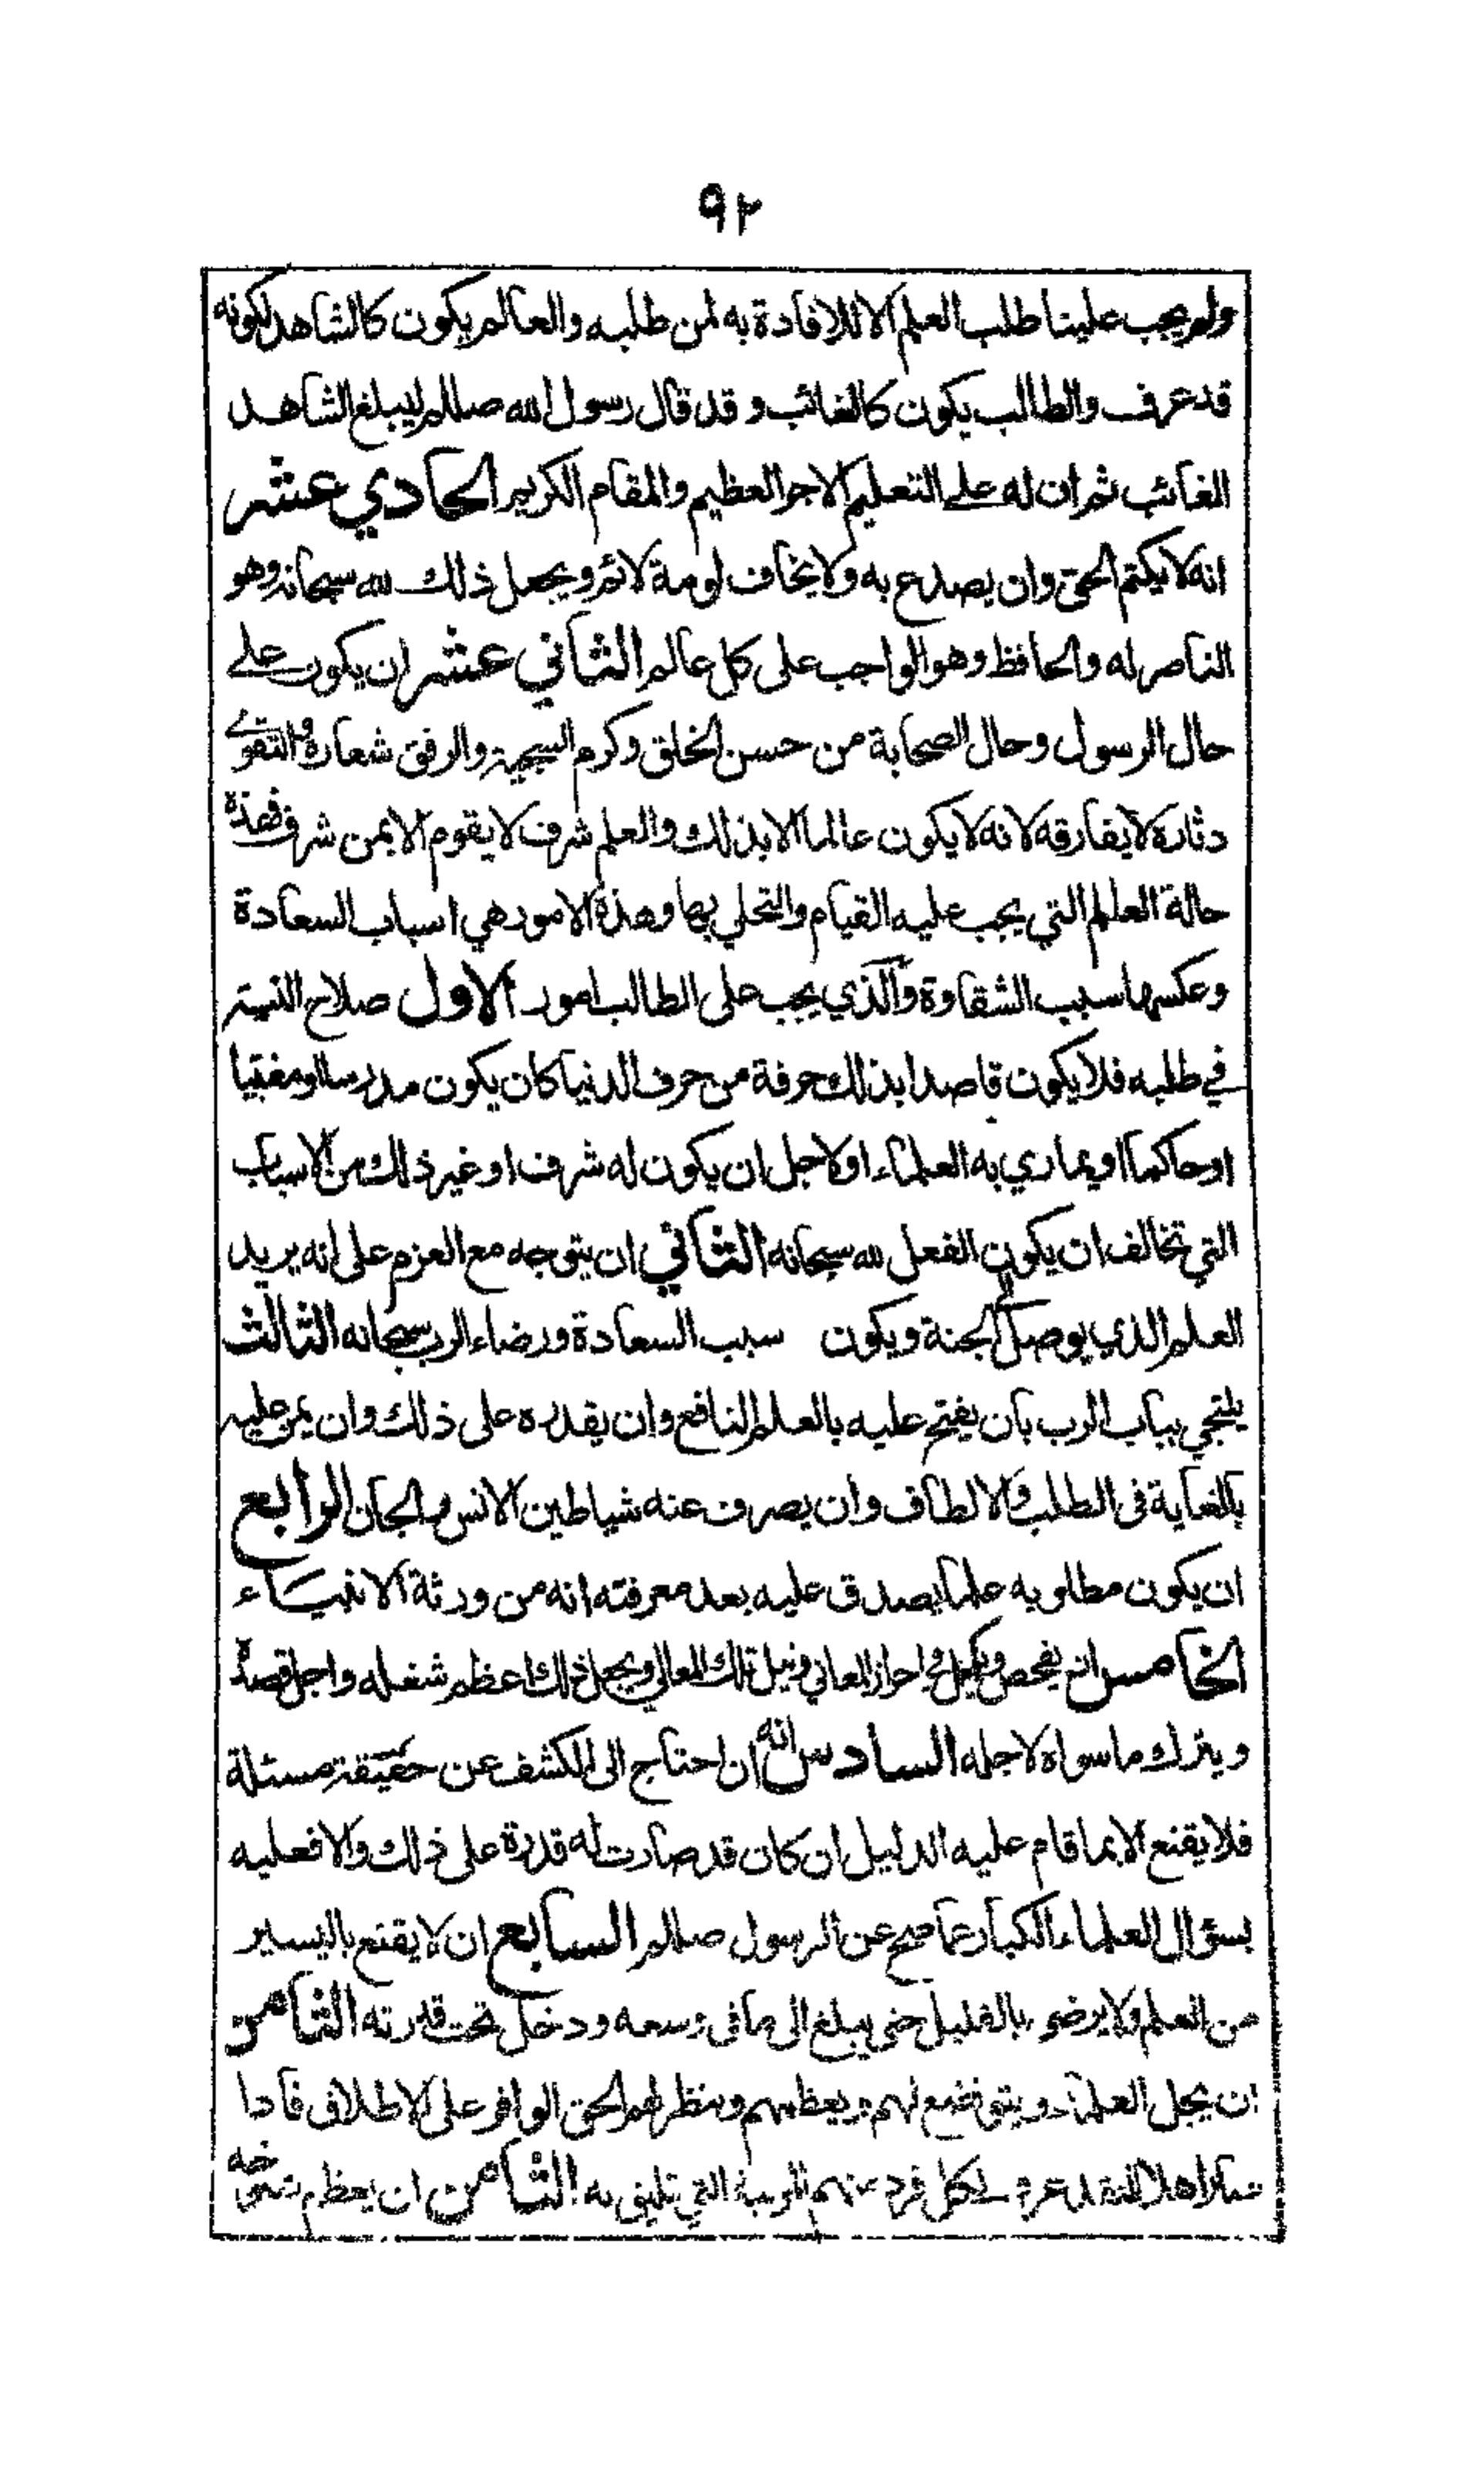 ٩٢
ولم يجب علينا طلب العلم الا للافادة به لمن طلبه والعالم يكون كالشاهد لكونه
قد عرف والطالب يكون كالغائب وقد قال رسول الله صللم ليبلغ الشاهد
الغائب ثم ان له على التعليم الاجر العظيم والمقام الكريم الحادي عشر
انه لا يكتم الحق وان يصدع به ولا يخاف لومة لائم ويجعل ذلك لله سبحانه وهو
الناصر له والحافظ وهو الواجب على كل عالم الثاني عشر ان يكون على
حال الرسول وحال الصحابة من حسن الخلق وكرم السجية والرفق شعاره والتقوى
دثاره لا يفارقه لانه لا يكون عالما الا بذلك والعلم شرف لا يقوم الا بمن شرف فهذه
حالة العالم التي يجب عليه القيام والتحلي بها وهذه الامور هي اسباب السعادة
وعكسها سبب الشقاوة والذي يجب على الطالب امور الاول صلاح النية
في طلبه فلا يكون قاصدا بذلك حرفة من حرف الدنيا كان يكون مدرسا او مفتيا
او حاكما او يماري به العلماء او لاجل ان يكون له شرف او غير ذلك من الاسباب
التي تخالف ان يكون الفعل لله سبحانه الثاني ان يتوجه مع العزم على انه يريد
العلم الذي يوصل الى الجنة ويكون سبب السعادة ورضاء الرب سبحانه الثالث
يلتجي بباب الرب بان يفتح عليه بالعلم النافع وان يقدره على ذلك وان يمن عليه
بالغاية فى الطلب والالطاف وان يصرف عنه شياطين الانس والجان الرابع
ان يكون مطلوبه علما يصدق عليه بعد معرفته انه من ورثة الانبياء
الخامس ان يفحص ويكمل في احراز المعاني ونيل تلك المعالي ويجعل ذلك اعظم شغله واجل قصده
ويترك ما سواه لاجله السادس انه ان احتاج الى الكشف عن حقيقة مسئلة
فلا يقنع الا بما قام عليه الدليل ان كان قد صارت له قدرة على ذلك والا فعليه
بسؤال العلماء الكبار عما صح عن الرسول صللم السابع ان لا يقنع باليسير
من العلم ولا يرضى بالقليل حتى يبلغ الى ما فى وسعه ودخل تحت قدرته الثامن
ان يجل العلماء ويتواضع لهم ويعظمهم وينظر لهم الحق الوافر على الاطلاق فاذا
لكل فرد منهم المرتبة التي تليق به الثامن ان يعظم شيخه